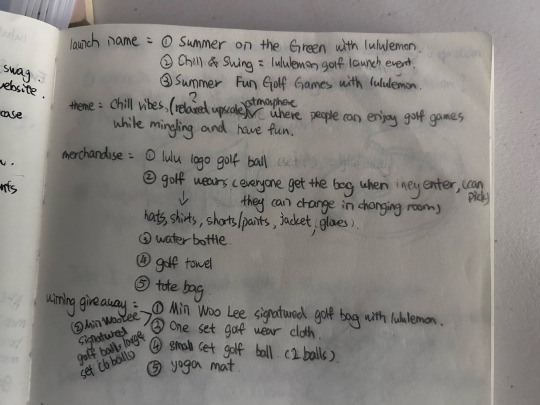 swag.
website.
case
launch name = ① Summer on the Green with lululemon.
② Chill & Swing = lululemon golf launch event.
③ Summer Fun Golf Games with lululemon.
theme = Chill vibes, (relaxed upscale) ? atmosphere where people can enjoy golf games
while mingling and have fun.
merchandise = ① lulu logo golf ball
② golf wears (everyone get the bag when they enter, (can pick)
they can change in changing room)
↓
hats, shirts, shorts/pants, jacket, gloves).
③ water bottle
④ golf towel
⑤ tote bag
winning giveaway = ① Min Woo Lee signatured golf bag with lululemon.
② Min Woo Lee
signatured
golf balls large
set (6 balls)
③ One set golf wear cloth.
④ small set golf ball (2 balls)
⑤ yoga mat